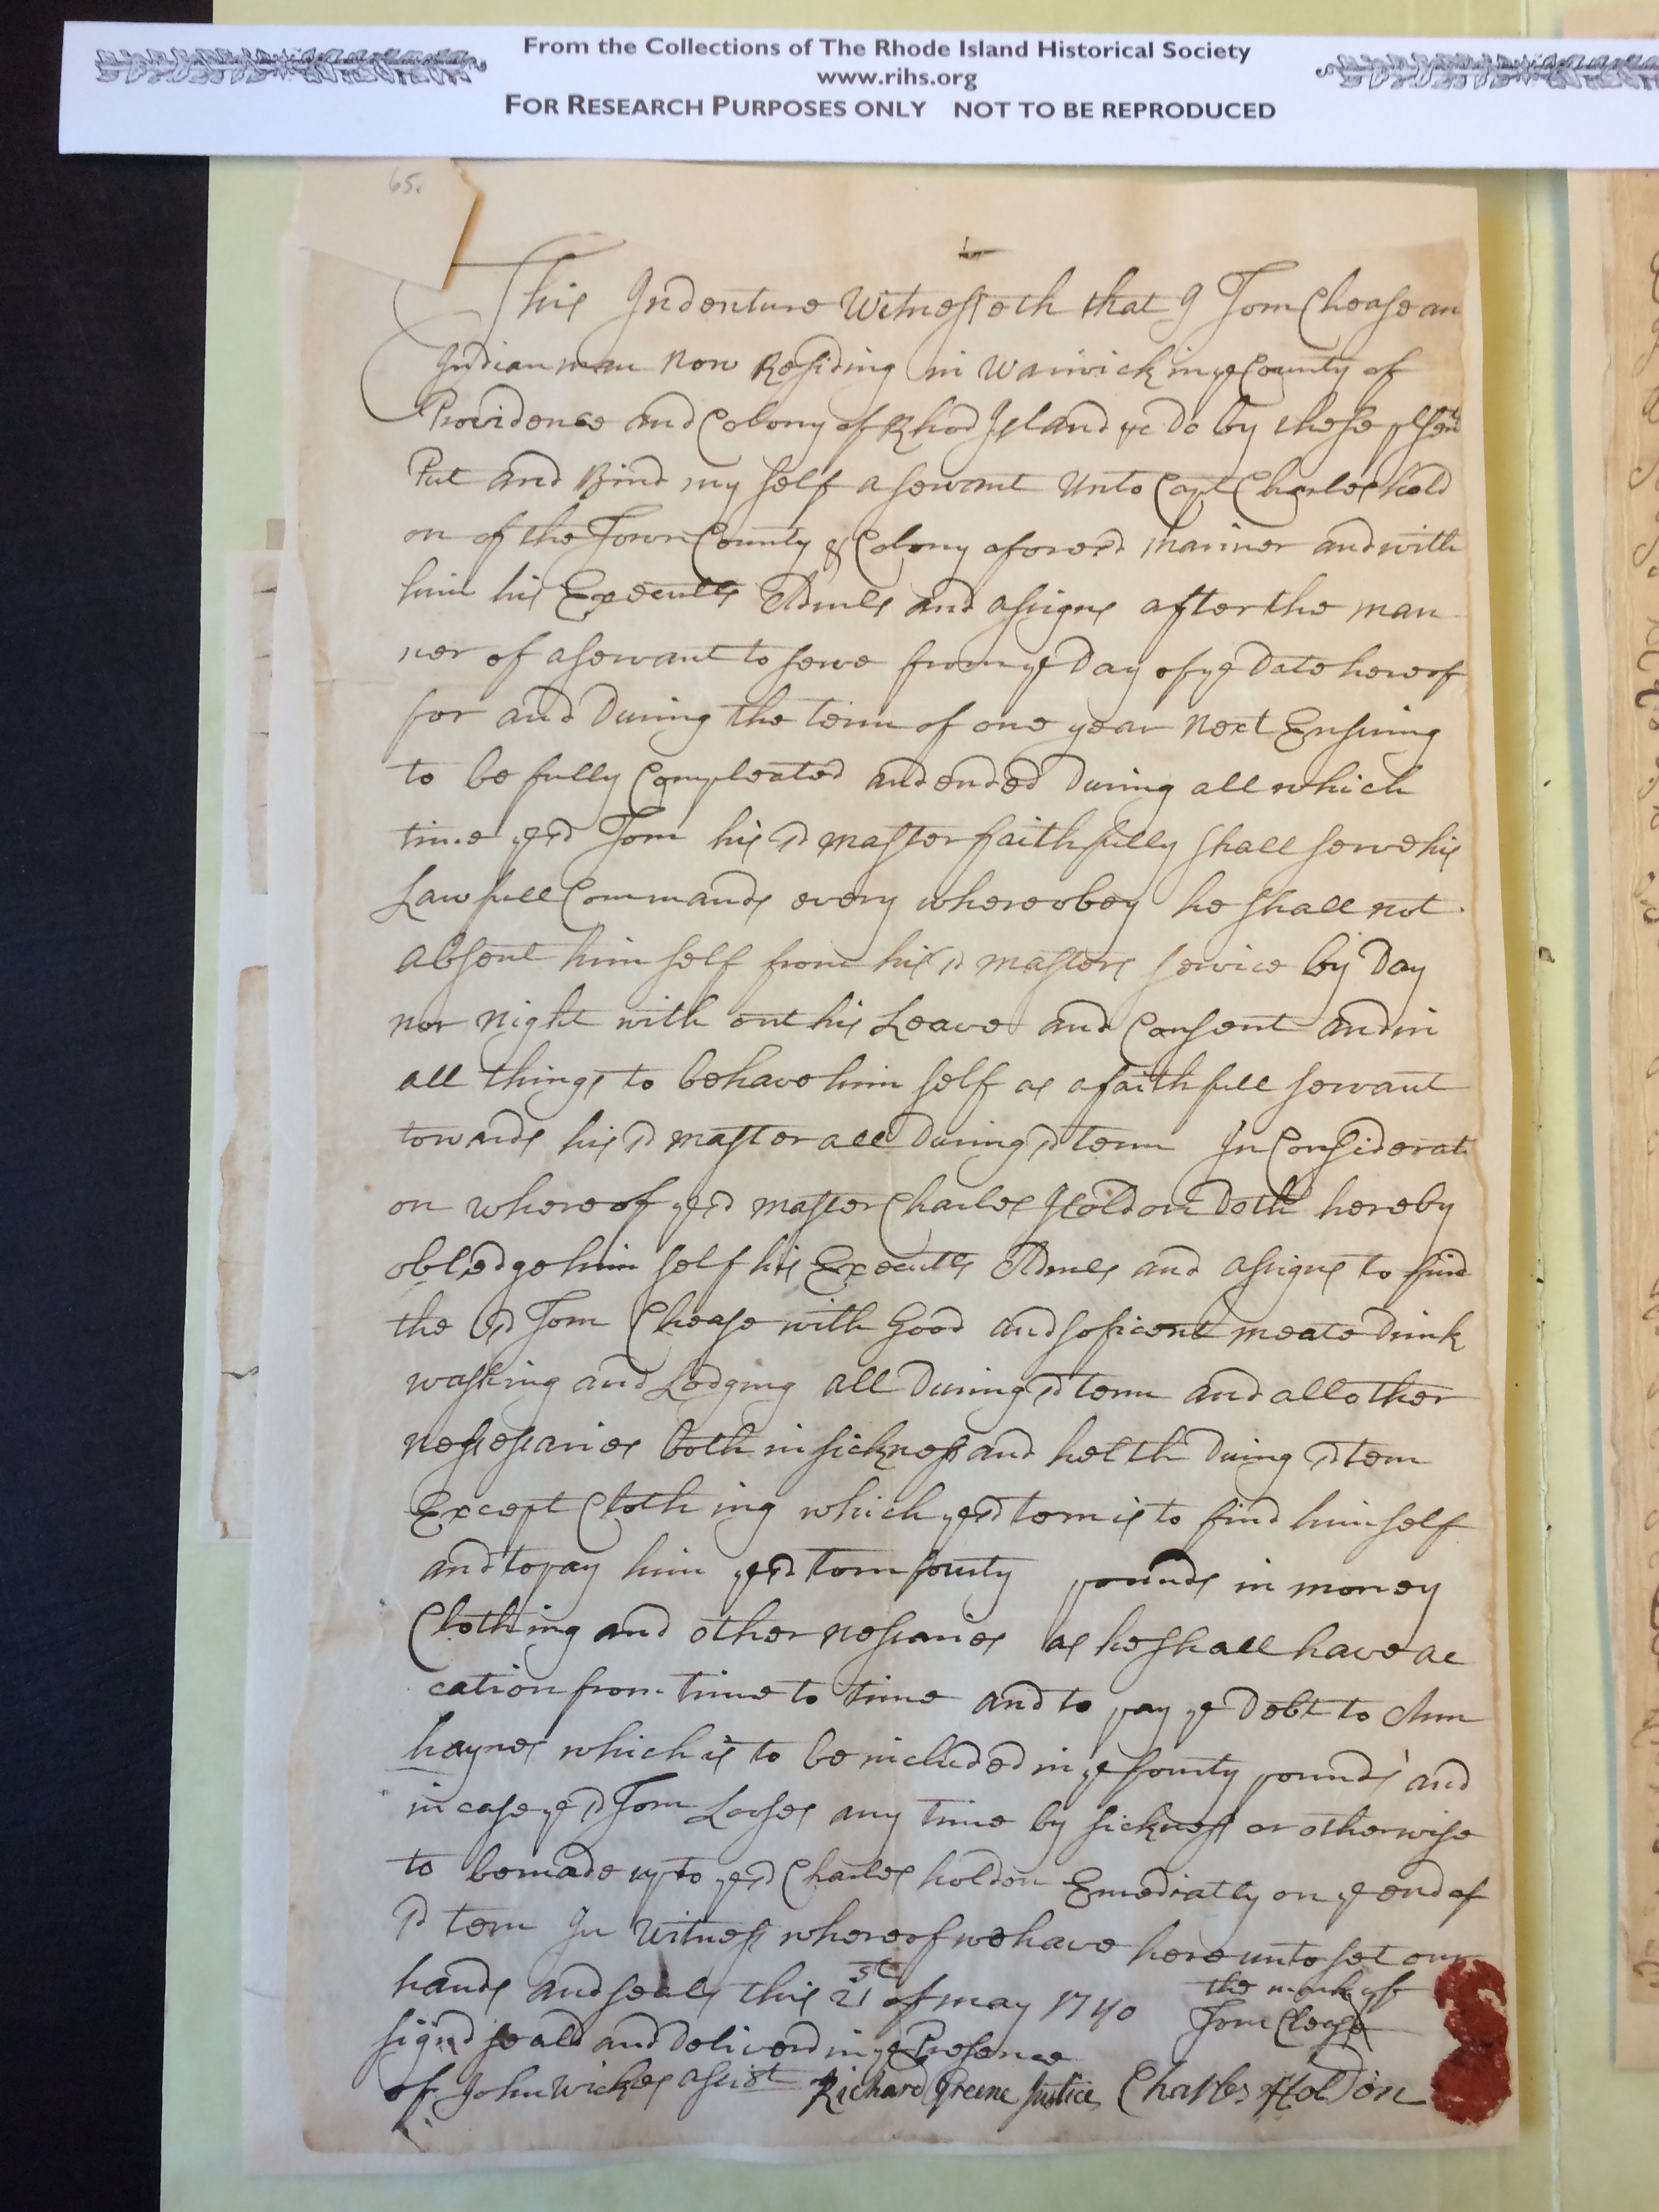 From the Collections of The Rhode Island Historical Society
www.rihs.org
FOR RESEARCH PURPOSES ONLY NOT TO BE REPRODUCED
65.
This Indenture Witnesseth that I Tom Chease an
Indian man Now Residing in Warwick in ye County of
Providence and Colony of Rhod Island &c Do by these psents
Put and Bind my self a servant Unto Capt Charles hold
on of the Town County & Colony aforesd mariner and with
him his Executrs Admrs and assigns after the man
ner of a servant to serve from ye Day of ye Date hereof
for and During the term of one year next Ensuing
to be fully Compleated and ended During all which
time ye sd Tom his sd master faithfully shall serve his
Lawfull Commands every where obey he shall not
absent him self from his sd masters service by Day
nor night with out his Leave and Consent and in
all things to behave him self as a faithfull servant
towards his sd master all During sd term In Considerati
on whereof ye sd master Charles Holdon doth hereby
obledge him self his Executrs Admrs and assigns to find
the sd Tom Chease with Good and soficent meate Drink
washing and Lodging all During sd term and all other
nessessaries both in sickness and helth duing sd term
Except Cloth ing which ye sd tom is to find him self
and to pay him ye sd tom fourty pounds in money
Clothing and other nessaries as he shall have ac
cation from time to time and to pay ye Debt to Ann
haynes which is to be included in ye fourty pounds and
in case ye sd Tom Looses any time by sickness or otherwise
to be made up to ye sd Charles holdon Emediatly on ye end of
sd term In Witness whereof we have here unto set our
hands and seals this 21st of may 1740
the mark of
Tom Chease
signd seald and deliverd in ye Presence
of John Wickes assist Richard Greene Justice Charles Holdon